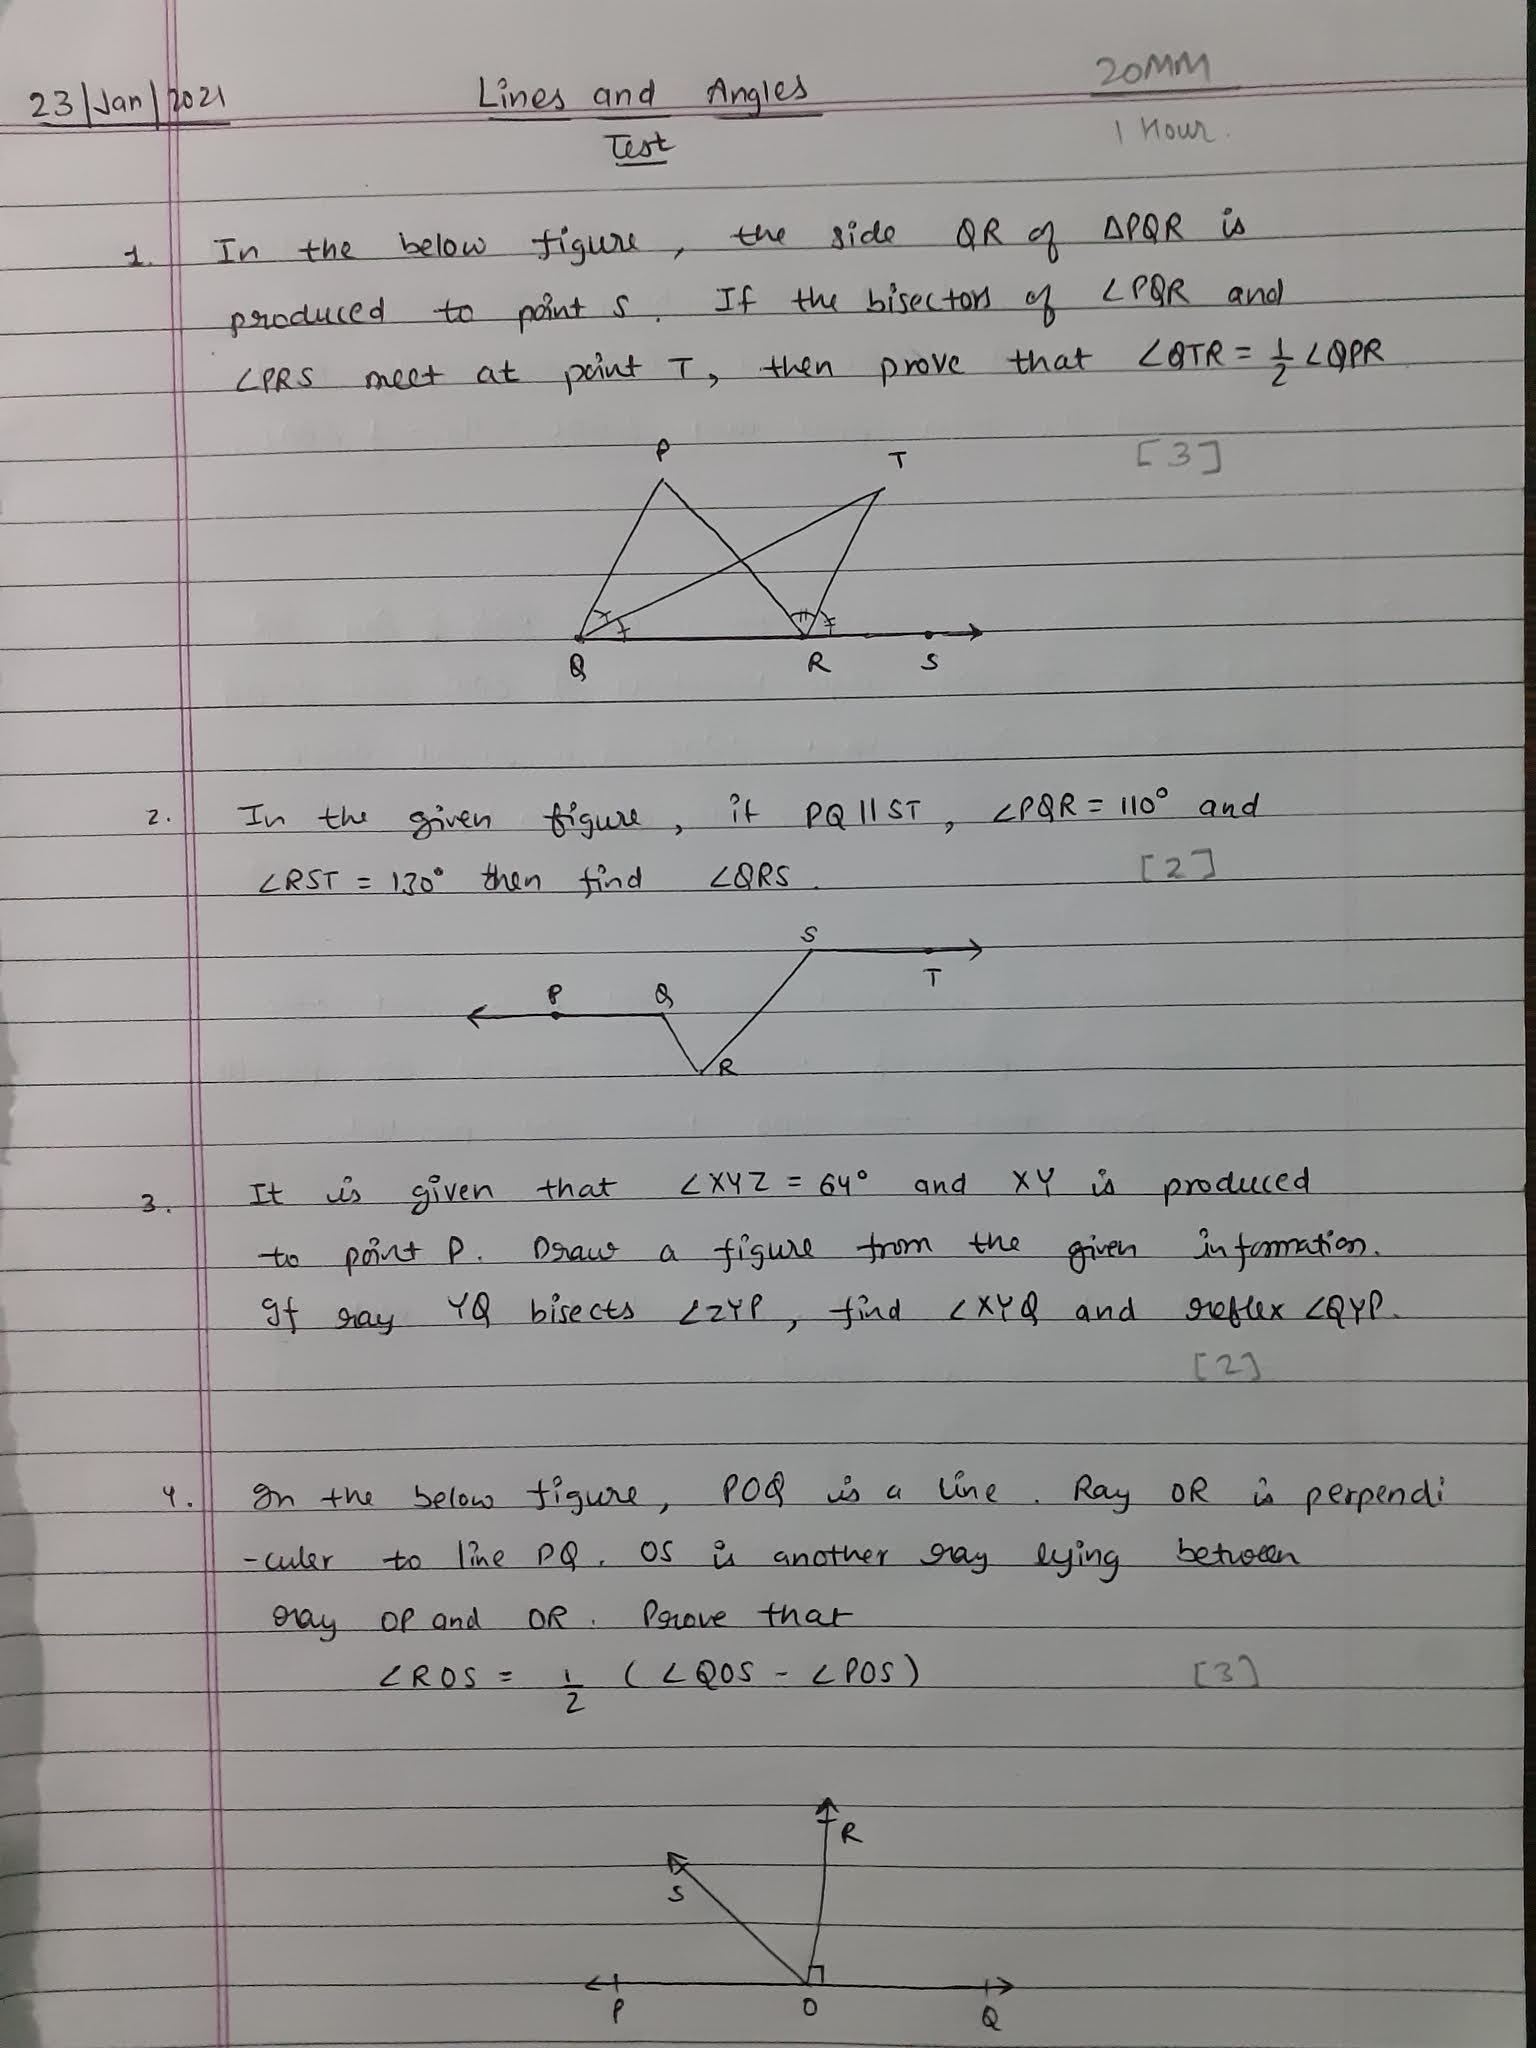 23/Jan/2021
Lines and Angles
Test
20MM
1 Hour.
1. In the below figure, the side QR of ΔPQR is
produced to point S. If the bisectors of ∠PQR and
∠PRS meet at point T, then prove that ∠QTR = 1/2 ∠QPR
[3]
P
T
Q
R
S
2. In the given figure, if PQ || ST, ∠PQR = 110° and
∠RST = 130° then find ∠QRS.
[2]
S
T
P
Q
R
3. It is given that ∠XYZ = 64° and XY is produced
to point P. Draw a figure from the given information.
If ray YQ bisects ∠ZYP, find ∠XYQ and reflex ∠QYP.
[2]
4. In the below figure, POQ is a line. Ray OR is perpendi
-culer to line PQ. OS is another ray lying between
ray OP and OR. Prove that
∠ROS = 1/2 (∠QOS - ∠POS)
[3]
R
S
P
O
Q